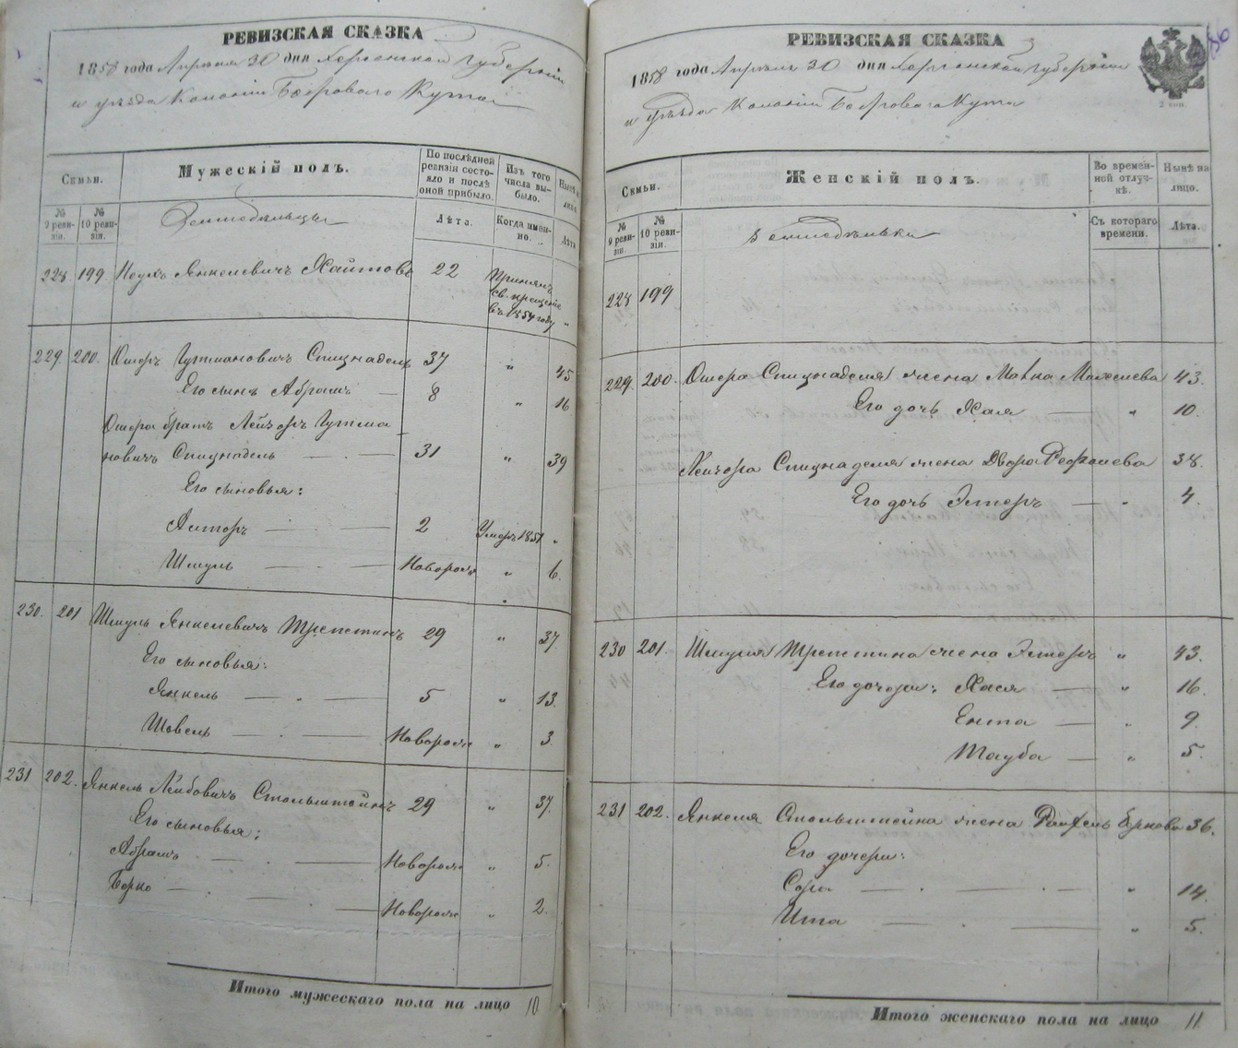 РЕВИЗСКАЯ СКАЗКА
1858 года Апреля 20 дня Херсонской Губернии
и уезда Колонии Боброваго Кута
Семьи.
Мужескій полъ.
По послѣдней ревизіи состояло и послѣ оной прибыло.
Изъ того числа выбыло.
Нынѣ на лицо.
№ 9 ревизіи.
№ 10 ревизіи.
Земледѣльцы
Лѣта.
Когда именно.
Лѣта
228 199 Янкелевичъ Хаитовъ 22 Принялъ св. крещеніе въ 1854 году "
229. 200. Ошеръ Гутмановичъ Спицнадель 37 " 45
Его сынъ Абрамъ — 8 " 16
Ошера братъ Лейзоръ Гутма-
новичъ Спицнадель — 31 " 39
Его сыновья:
2 Умеръ 1851 "
Шмуль — Новорож " 6.
230. 201 Шмуль Янкелевичъ Трепетинъ 29 " 37
Его сыновья:
Янкель — " — 5 " 13.
Шовель — Новорож " 3.
231 202. Янкель Лейбовичъ Стольштейнъ 29 " 37.
Его сыновья:
Абрамъ — Новорож " 5.
Борко — Новорож " 2.
Итого мужескаго пола на лицо 10
РЕВИЗСКАЯ СКАЗКА
1858 года Апреля 20 дня Херсонской Губернии
и Уезда Колонии Боброваго Кута
2 коп.
36
Семьи.
Женскій полъ.
Во временной отлучкѣ.
Нынѣ на лицо.
№ 9 ревизіи.
№ 10 ревизіи.
Земледѣлки
Съ котораго времени.
Лѣта.
228 199
229. 200. Ошера Спицнаделя жена Малка 43.
Его дочь Хая — " 10.
Лейзора Спицнаделя жена Двора 38.
Его дочь Эстеръ — " 4.
230 201. Шмуля Трепетина жена Эстеръ " 43.
Его дочери: Хася — " 16.
Ента — " 9.
Тауба — " 5.
231 202. Янкеля Стольштейна жена Рахель Беркова 36.
Его дочери:
Сора — " 14.
Ита — " 5.
Итого женскаго пола на лицо 11